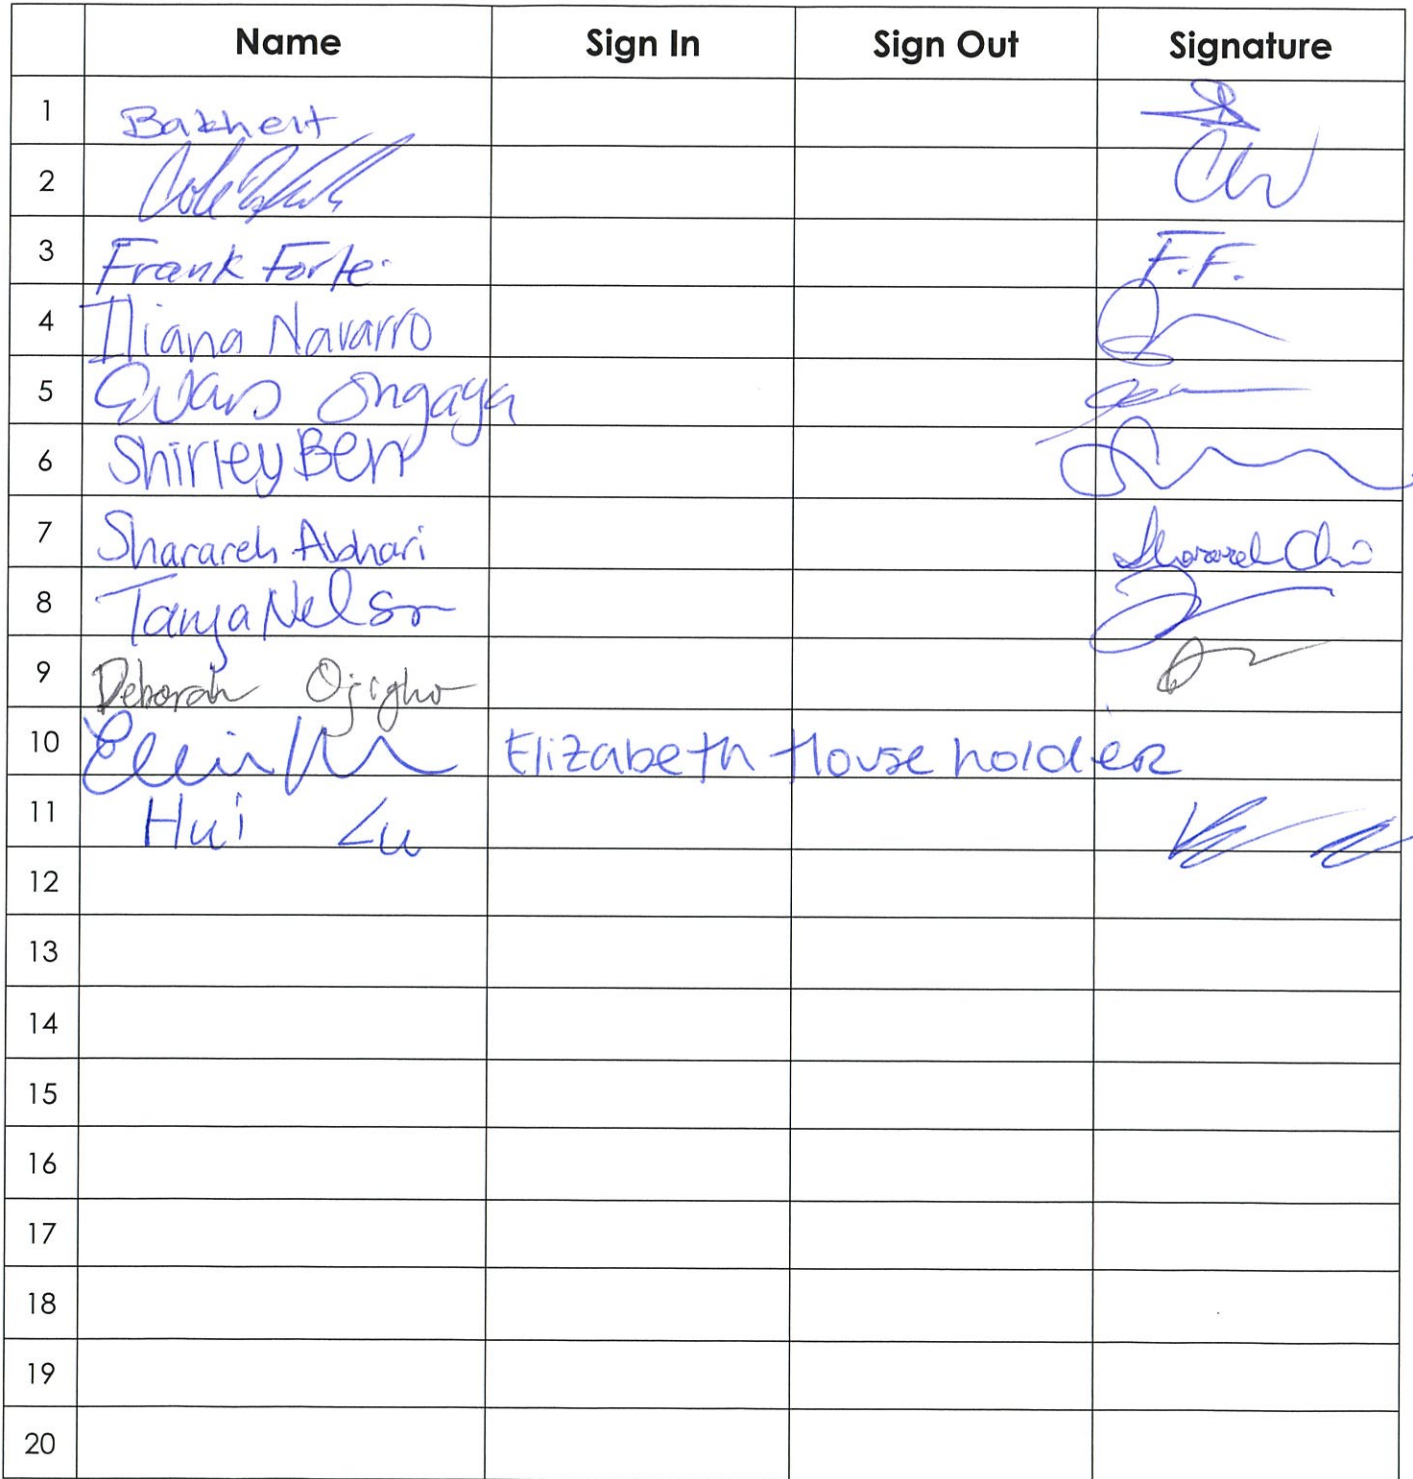 Name Sign In Sign Out Signature
1 Bakheit
2
3 Frank Forte. F.F.
4 Iliana Navarro
5 Evans Ongaya
6 Shirley Berr
7 Sharareh Abhari Sharareh
8 Tanya Nelson
9 Deborah Ojigho
10 Elizabeth Householder
11 Hui Lu
12
13
14
15
16
17
18
19
20